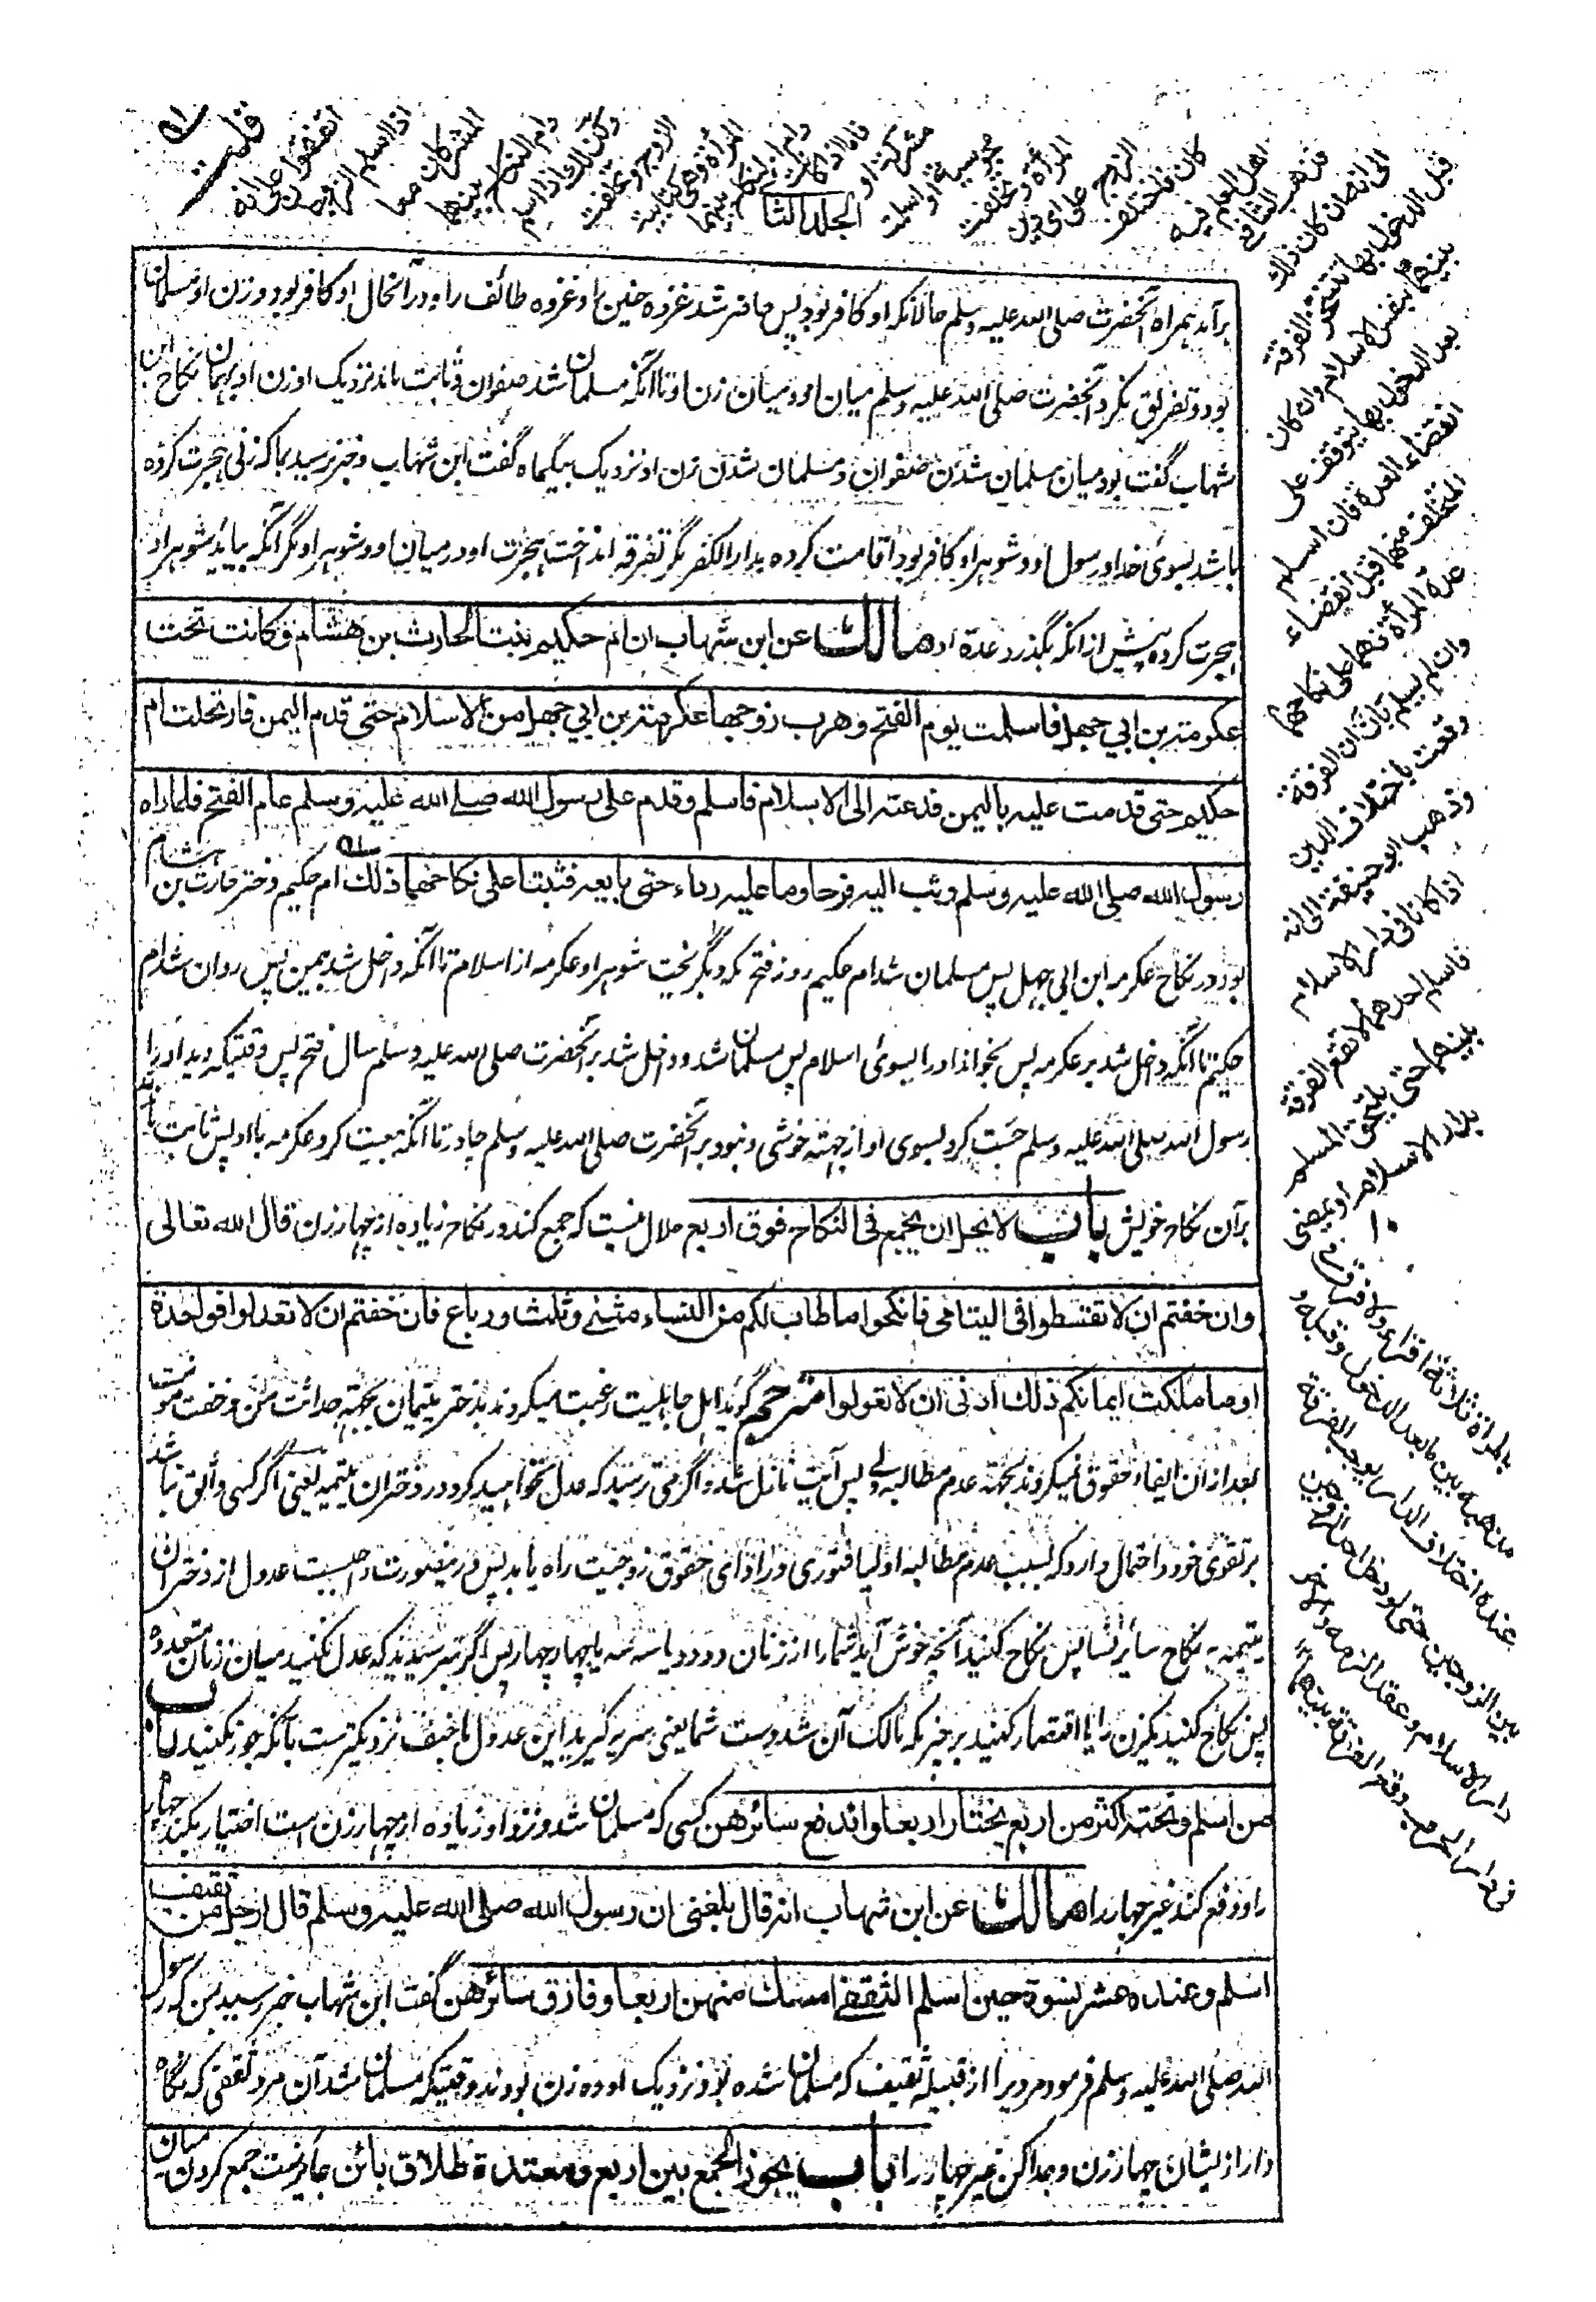 الجلد الثانی
برآمد ہمراہ آنحضرت صلی اللہ علیہ وسلم حالانکہ او کافر بود پس حاضر شد غزوہ حنین را و غزوہ طائف را و درآنحال او کافر بود و زن او مسلمان
بود و تفریق نکرد آنحضرت صلی اللہ علیہ وسلم میان او و میان زن او تا آنکہ مسلمان شد صفوان و ثابت ماند نزدیک او زن او بہمان نکاح ابن
شہاب گفت بود میان مسلمان شدن صفوان و مسلمان شدن زن او نزدیک بیکماہ گفت ابن شہاب و خبر نرسید بما کہ زنی ہجرت کردہ
باشد بسوئ خدا و رسول او و شوہر او کافر بود اقامت کردہ بدار الکفر مگر تفرقہ انداخت ہجرت او درمیان او و شوہر او مگر آنکہ بیاید شوہر او
ہجرت کردہ پیش از آنکہ بگذرد عدۃ او مالك عن ابن شهاب ان ام حكيم بنت الحارث بن هشام وكانت تحت
عكرمة بن ابي جهل فاسلمت يوم الفتح وهرب زوجها عكرمة بن ابي جهل من الاسلام حتى قدم اليمن فارتحلت ام
حكيم حتى قدمت عليه باليمن فدعته الى الاسلام فاسلم وقدم على رسول الله صلے الله عليه وسلم عام الفتح فلما راه
رسول الله صلى الله عليه وسلم وثب اليه فرحا وما عليه رداء حتى بايعه فثبتا على نكاحهما ذلك ام حکیم دختر حارث بن ہشام
بود در نکاح عکرمہ ابن ابی جہل پس مسلمان شد ام حکیم روز فتح مکہ و بگریخت شوہر او عکرمہ از اسلام تا آنکہ داخل شد بیمن پس روان شد ام
حکیم تا آنکہ داخل شد بر عکرمہ پس بخواند او را بسوئ اسلام پس مسلمان شد و داخل شد بر آنحضرت صلی اللہ علیہ وسلم سال فتح پس وقتیکہ دید او را
رسول اللہ صلی اللہ علیہ وسلم جست کرد بسوی او از جہتہ خوشی و نبود بر آنحضرت صلی اللہ علیہ وسلم چادر تا آنکہ بیعت کرد عکرمہ با او پس ثابت ماند
برآن نکاح خویش باب لا يحل ان يجمع في النكاح فوق اربع حلال نیست کہ جمع کند در نکاح زیادہ از چہار زن قال الله تعالى
وان خفتم ان لا تقسطوا فى اليتامى فانكحوا ما طاب لكم من النساء مثنے وثلث ورباع فان خفتم ان لا تعدلوا فواحدة
او ما ملكت ايمانكم ذلك ادنى ان لا تعولوا مترجم گوید اہل جاہلیت رغبت میکردند بدختر یتیمان بجہتہ حداثت سن و خفت مونت
بعد از ان ایفاء حقوق نمیکردند بجہتہ عدم مطالبہ ولے پس آیت نازل شد و اگر می ترسید کہ عدل نخواہید کرد در دختران یتیمہ یعنی اگر کسی واثق نباشد
بر تقوی خود و احتمال دارد کہ بسبب عدم مطالبہ اولیا فتوری در ادای حقوق زوجیت راہ یابد پس درینصورت واجبست عدول از دختران
یتیمہ بہ نکاح سائر نسا پس نکاح کنید آنچہ خوش آید شما را از زنان دو دو یا سہ سہ یا چہار چہار پس اگر بترسیدید کہ عدل نکنید میان زنان متعددہ
پس نکاح کنید یکزن را یا اقتصار کنید بر چیزیکہ مالک آن شد دست شما یعنی سریہ گیرید این عدول نزدیکترست بآنکہ جور نکنید باب
من اسلم وتحته اكثر من اربع يختار اربعا ويدفع سائرهن کسی کہ مسلمان شد و نزد او زیادہ از چہار زن است اختیار بکند چہار
را و دفع کند غیر چہار را مالك عن ابن شهاب انه قال بلغنى ان رسول الله صلى الله عليه وسلم قال لرجل من ثقيف
اسلم وعنده عشر نسوة حين اسلم الثقفے امسك منهن اربعا وفارق سائرهن گفت ابن شہاب خبر رسید بمن کہ رسول
اللہ صلی اللہ علیہ وسلم فرمود مردیرا از قبیلہ ثقیف کہ مسلمان شدہ بود و نزدیک او دہ زن بودند وقتیکہ مسلمان شد آن مرد ثقفی کہ نگاہ
دار از ایشان چہار زن و جدا کن غیر چہار را باب يجوز الجمع بين اربع ومعتدة طلاق بائن جائزست جمع کردن میان
قلت
اتفقوا على انه
اذا اسلم الزوجان
المشركان معا
دام النكاح بينهما
وكذلك اذا اسلم
الزوج وتخلفت
المرأة وهى كتابية
دام النكاح بينهما
فاما اذا كانت
مشركة او
مجوسية او اسلمت
المرأة وتخلف
الزوج على اي دين
كان فاختلف
اهل العلم فيه
فذهب الشافعي
الى انه ان كان ذلك
قبل الدخول بها تتنجز الفرقة
بينهما بنفس الاسلام وان كان
بعد الدخول بها يتوقف على
انقضاء العدة فان اسلم
المتخلف منهما قبل انقضاء
عدة المرأة فهما على نكاحهما
وان لم يسلم بان ان الفرقة
وقعت باختلاف الدين
وذهب ابو حنيفة الى انه
اذا كانا فى دار الاسلام
فاسلم احدهما لا تقع الفرقة
بينهما حتى يلتحق المسلم
بدار الاسلام او يمضى
بالمرأة ثلاثة اقراء ولا فرق فى
مذهبه بين ما بعد الدخول وقبله و
عنده اختلاف الدار يوجب الفرقة
بين الزوجين حتى لو دخل احد الزوجين
دار الاسلام وعقد الذمة والاخر
فى دار الحرب وقع الفرقة بينهما